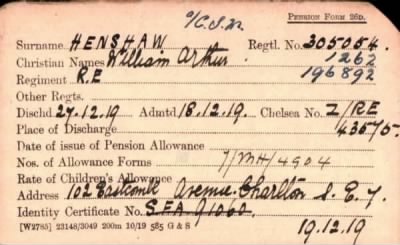 PENSION FORM 26D.
a/C.S.M.
Surname HENSHAW Regtl. No. 305054.
Christian Names William Arthur. 1262
Regiment R.E 196892
Other Regts.
Dischd 27.12.19 Admtd 18.12.19 Chelsea No. Z/RE
Place of Discharge 43575.
Date of issue of Pension Allowance
Nos. of Allowance Forms 7/MH/4904
Rate of Children's Allowance
Address 102 Eastcombe Avenue. Charlton S.E.7
Identity Certificate No. SEA 91060.
[W2785] 23148/3049 200m 10/19 585 G & S 19.12.19